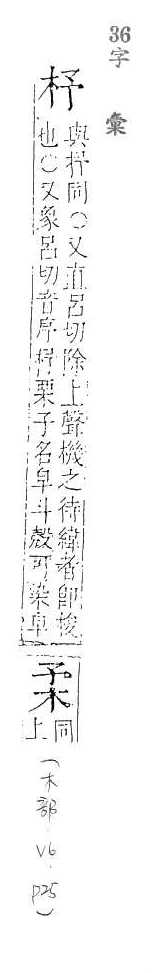 36
字 彙
杼
與杼同〇又直呂切除上聲機之持緯者卽梭
也〇又象呂切音序杼栗子名皁斗殼可染皁
柔
同
上
(木部 V6. P25)